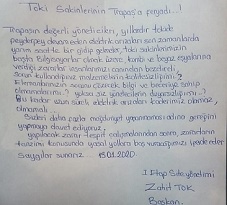 Toki Sakinlerinin Trapaş'a feryadı..!
Trapaşın değerli yöneticileri, yıllardır
peyderpey devam eden elektrik arızaları son zamanlarda
yarım saatte bir gidip gelmekte, toki sakinlerimizin
başta Bilgisayarlar olmak üzere, kombi ve beyaz eşyalarına
verdiği zararlar insanlarımızı canından bezdirdi,
Sorun kullandığınız malzemelerin kalitesizliğimi?
Elemanlarınızın sorunu çözmek bilgi ve beceriye sahip
olmamalarımı? yoksa siz yöneticilerin duyarsızlığımı..?
Bu kadar uzun süreli elektrik arızaları kaderimiz olamaz,
olmamalı..
Sizleri daha fazla mağduriyet yaşanmaması adına gereğini
yapmaya davet ediyoruz,
yapılacak zarar tespit çalışmalarından sonra, zararların
tazmini konusunda yasal yollara baş vuracağımızı ifade eder
Saygılar sunarız. 15.01.2020
1. Etap Site yönetimi
Zahit TOK
Başkan.